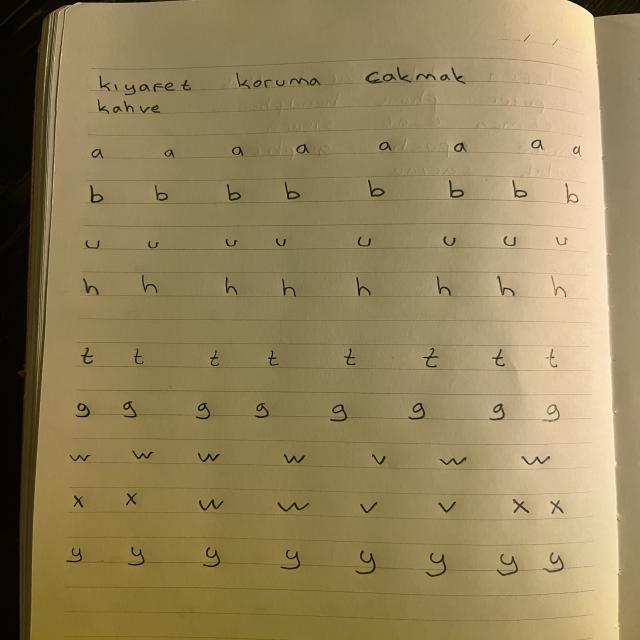 kıyafet koruma Çakmak
kahve
a a a a a a a a
b b b b b b b b
u u u u u u u u
h h h h h h h h
t t t t t t t t
g g g g g g g g
w w w w v w w
x x w w v v x x
y y y y y y y y